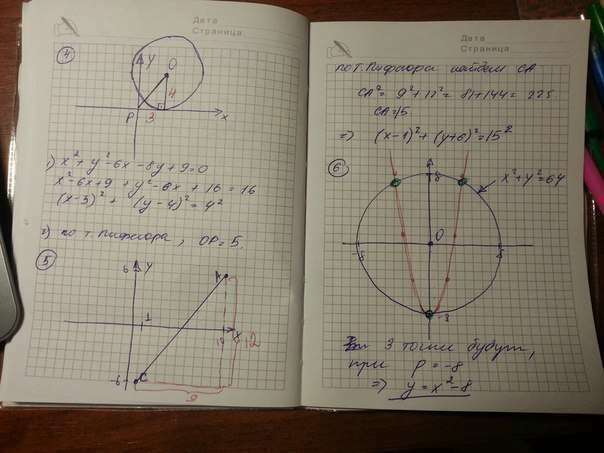 Дата
Страница
4
y
O
4
P
3
x
1) x² + y² - 6x - 8y + 9 = 0
x² - 6x + 9 + y² - 8x + 16 = 16
(x - 3)² + (y - 4)² = 4²
2) по т. Пифагора, OP = 5.
5
6
y
A
1
x
12
-6
C
9
Дата
Страница
по т. Пифагора найдем CA
CA² = 9² + 12² = 81 + 144 = 225
CA = 15
=> (x - 1)² + (y + 6)² = 15²
6
8
x² + y² = 64
O
-8
3 точки будут,
при p = -8
=> y = x² - 8